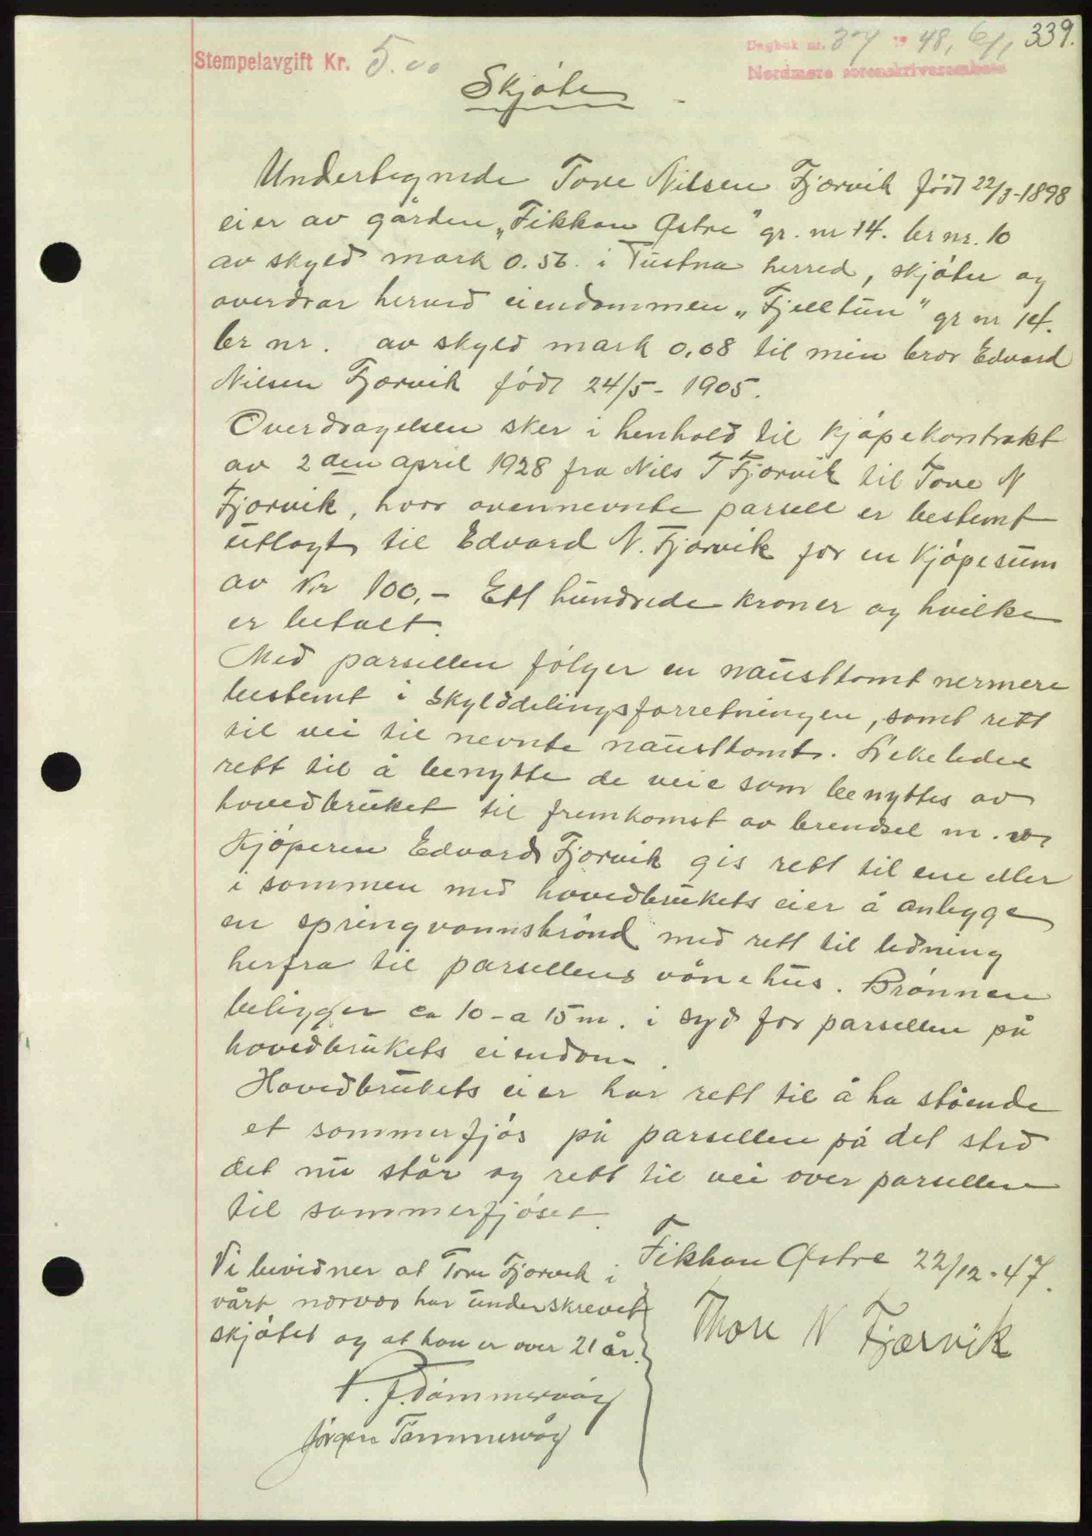 339.
Dagbok nr. 37 19 48, 6/1
Stempelavgift Kr. 5.00
Nordmøre sorenskriverembete
Skjøte
Undertegnede Tore Nilsen Fjærvik født 22/3-1898
eier av gården „Fikkan Østre" gr. nr 14. br nr. 10
av skyld mark 0.56. i Tustna herred, skjøter og
overdrar herved eiendommen „Fjelltun" gr nr 14.
br nr. av skyld mark 0,08 til min bror Edvard
Nilsen Fjærvik født 24/5-1905.
Overdragelsen sker i henhold til kjøpekontrakt
av 2 den april 1928 fra Nils T Fjærvik til Tore N
Fjærvik, hvor ovennevnte parsell er bestemt
utlagt til Edvard N. Fjærvik for en kjøpesum
av Kr 100,- Ett hundrede kroner og hvilke
er betalt.
Med parsellen følger en nausttomt nermere
bestemt i skylddelingsforretningen, samt rett
til vei til nevnte nausttomt. Likeledes
rett til å benytte de veie som benyttes av
hovedbruket til fremkomst av brendsel m.v.
Kjøperen Edvard Fjærvik gis rett til ene eller
i sammen med hovedbrukets eier å anlegge
en springvannsbrønd med rett til ledning
herfra til parsellens vånehus. Brønnen
beligger ca 10-a 15 m. i syd for parsellen på
hovedbrukets eiendom.
Hovedbrukets eier har rett til å ha stående
et sommerfjøs på parsellen på det sted
det nu står og rett til vei over parsellen
til sommerfjøset.
Fikkan Østre 22/12-47.
Vi bevidner at Tore Fjærvik i
vårt nærvær har underskrevet
skjøtet og at han er over 21 år.
Thore N Fjærvik
J. Tømmervåg
Jørgen Tømmervåg